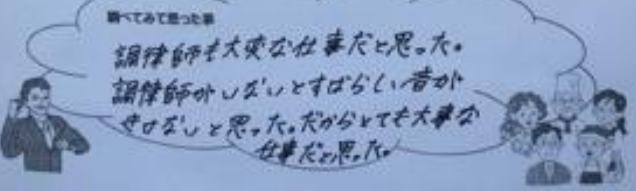 調べてみて思った事
調律師も大変な仕事だと思った。
調律師がいないとすばらしい音が
きけないと思った。だからとても大事な
仕事だと思った。